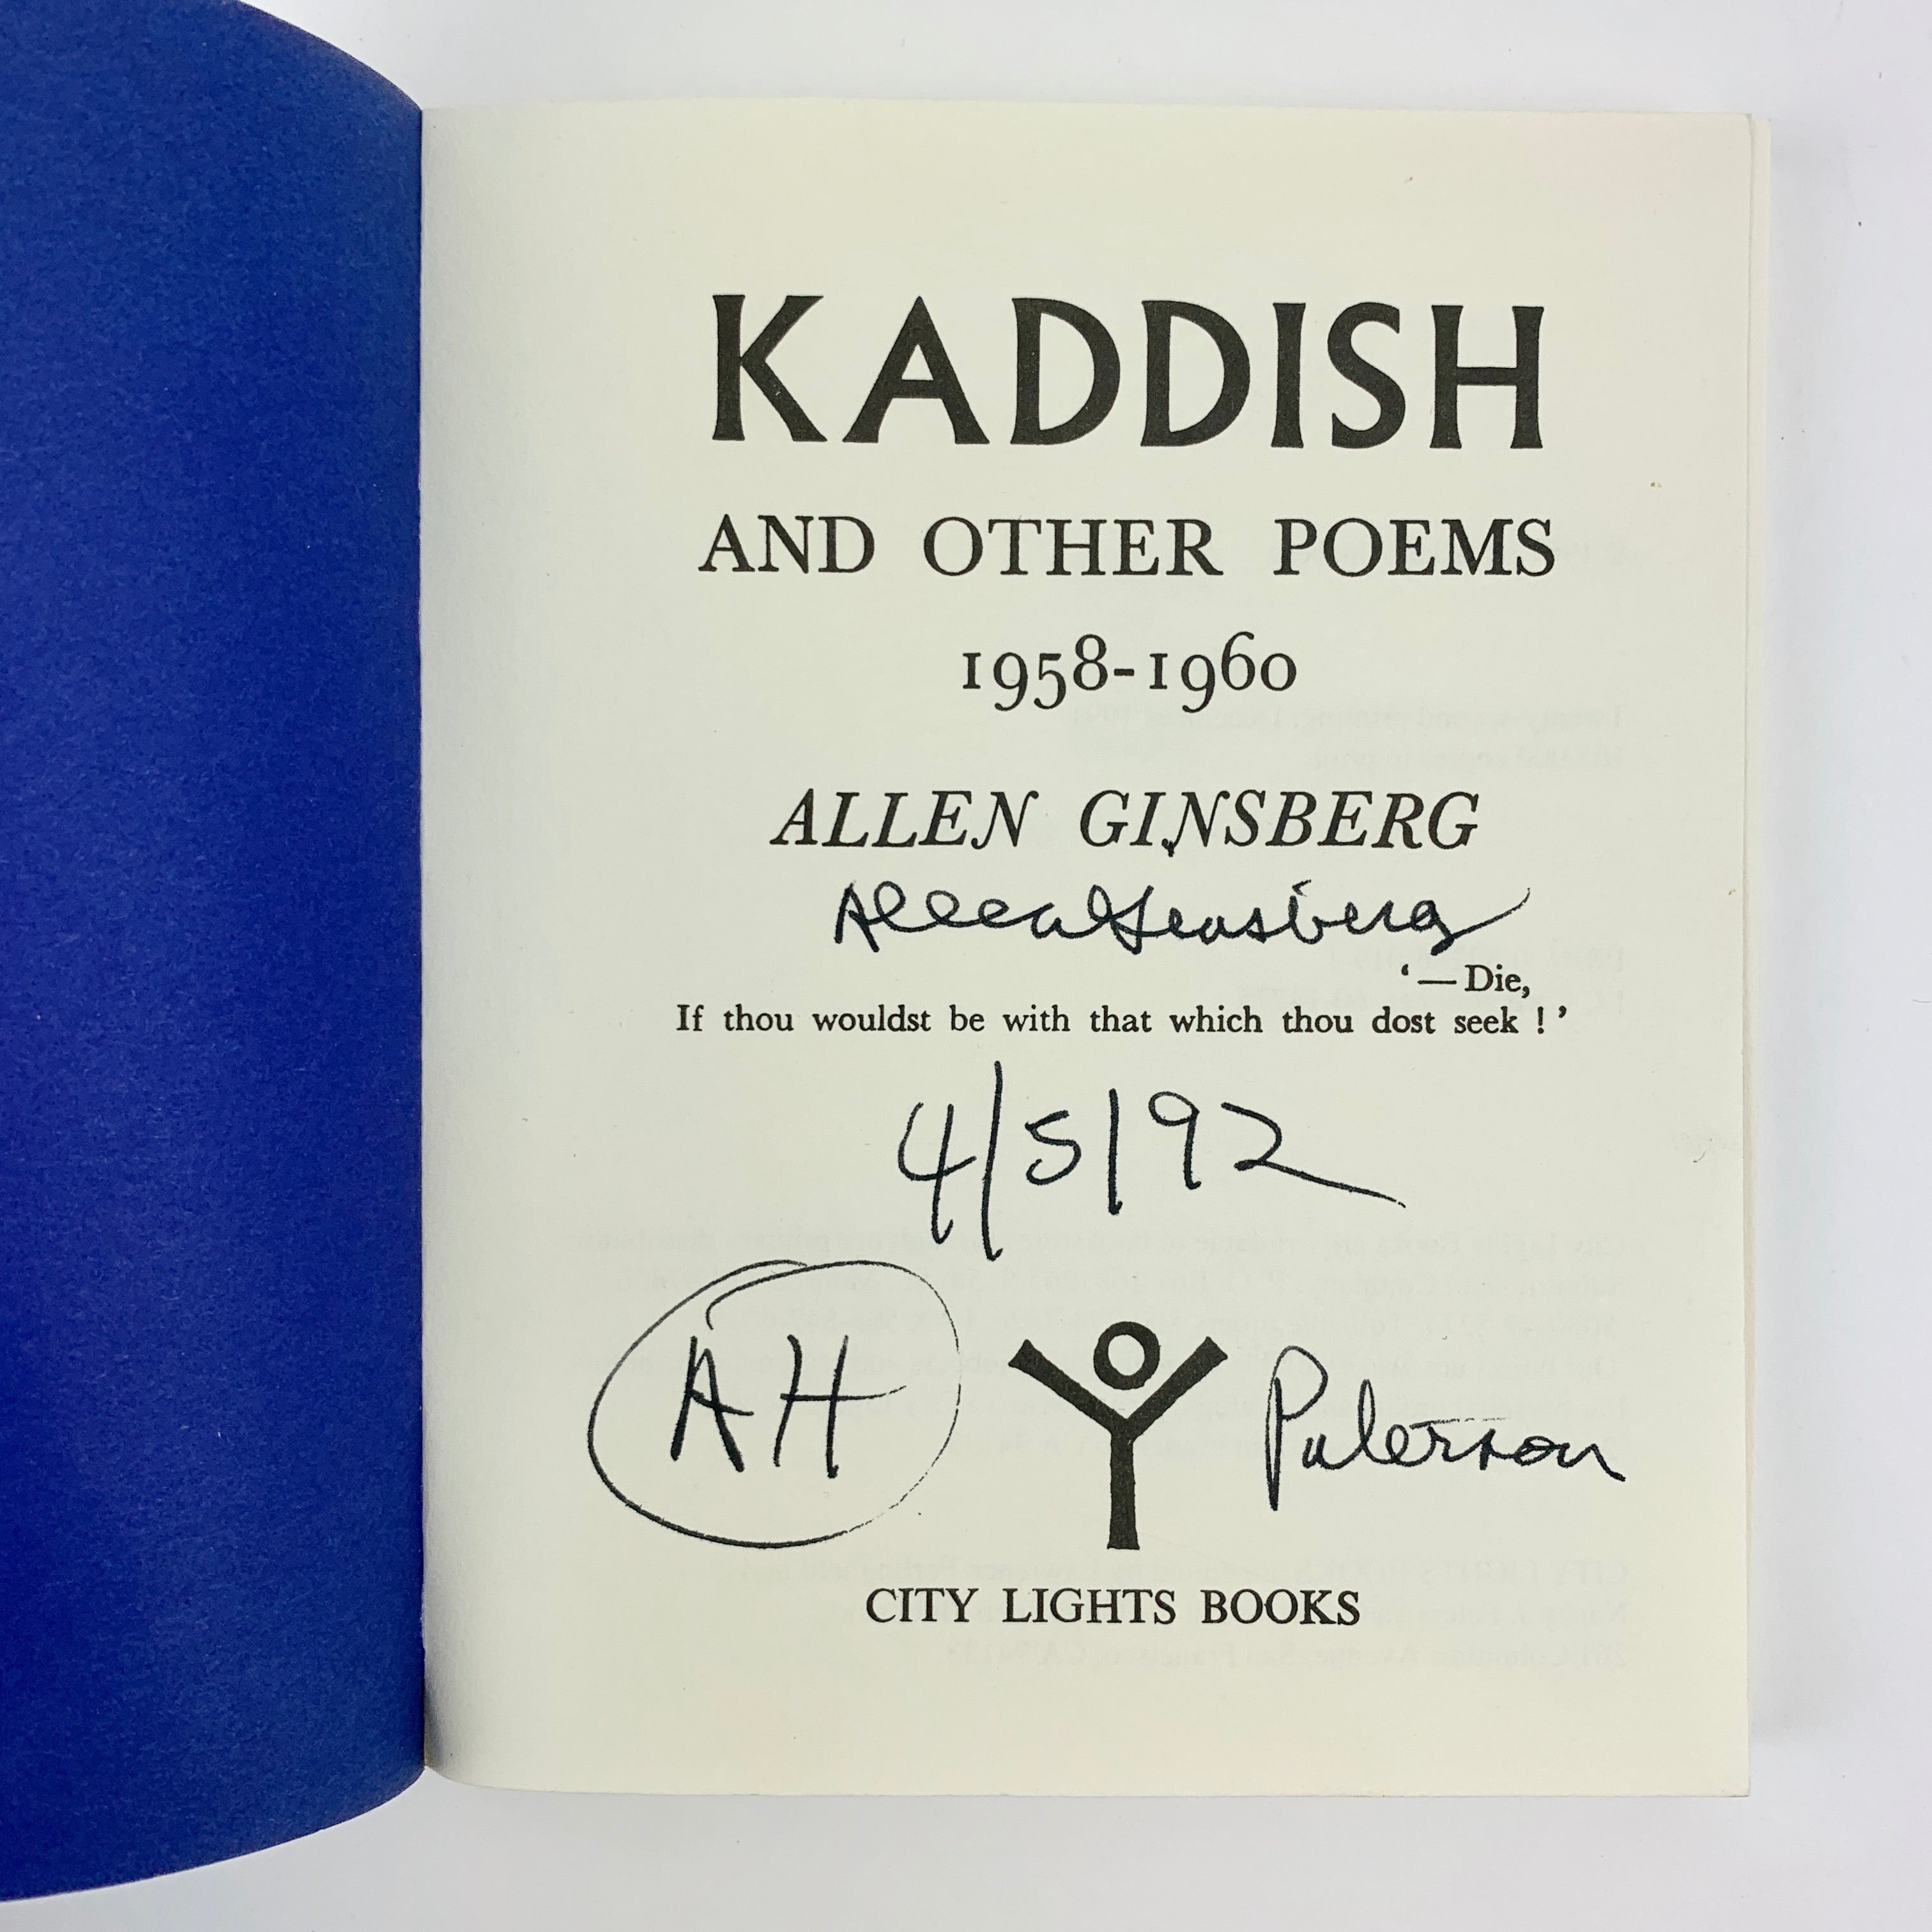 KADDISH
AND OTHER POEMS
1958-1960
ALLEN GINSBERG
Allen Ginsberg
‘—Die,
If thou wouldst be with that which thou dost seek !’
4/5/92
AH
Paterson
CITY LIGHTS BOOKS